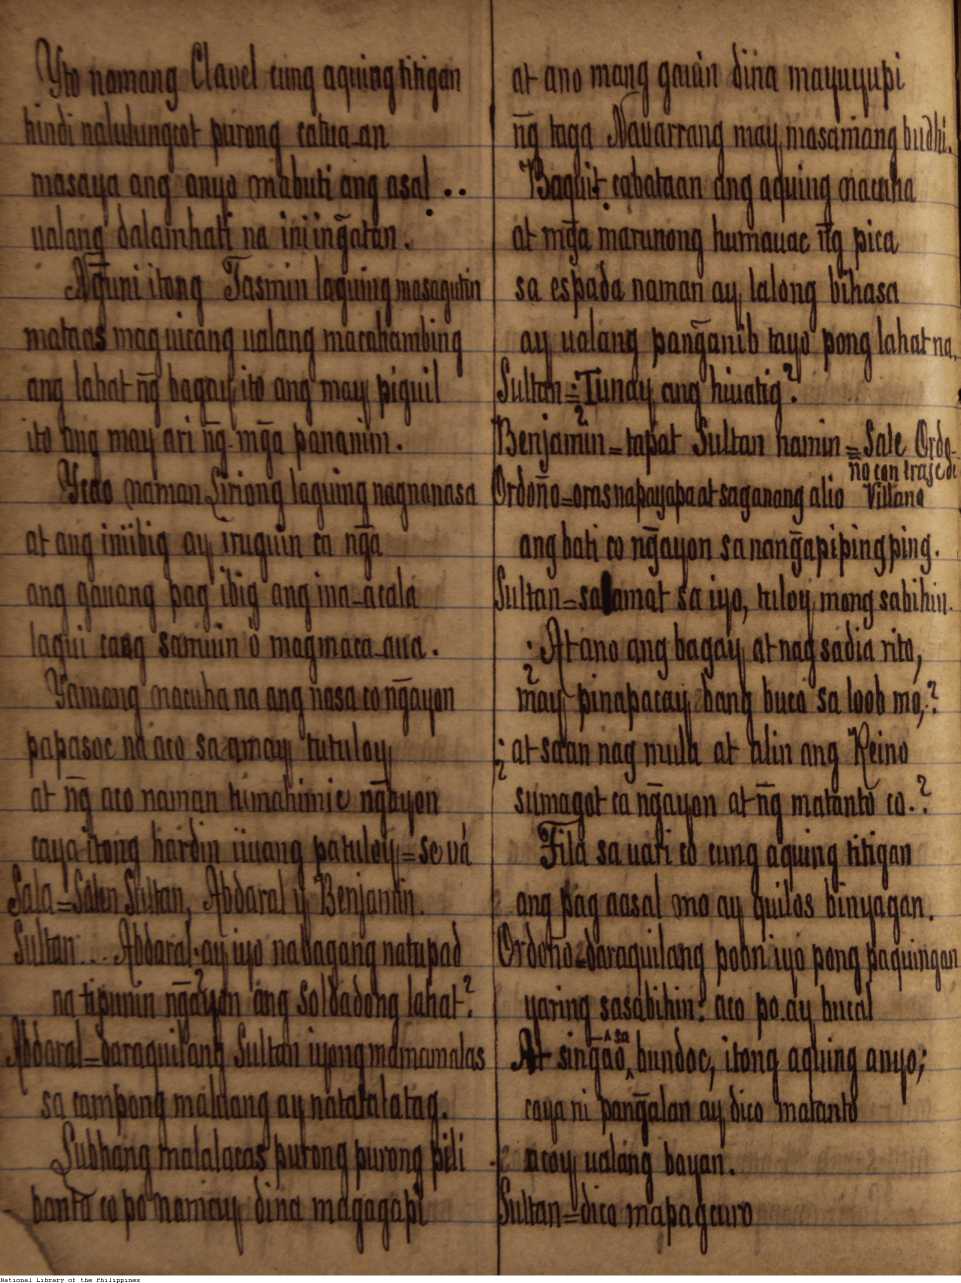 Yto namang Clavel cung aquing titigan
hindi nalulungcot purong catua-an
masaya ang anyo mabuti ang asal ..
ualang dalamhati na iniing̃atan.
Ng̃uni itong Jasmin laguing masagutin
mataas mag uicang ualang macahambing
ang lahat ng̃ bagay, ito ang may piguil
ito ang may ari ng̃ mg̃a pananim.
Ycao naman Liriong laguing nagnanasa
at ang iniibig ay iruguin ca ng̃a
ang gauang pag ibig ang ina-acala
lagui cang samuin o magmaca-aua.
Yamang nacuha na ang nasa co ng̃ayon
papasoc na aco sa amay tutuloy
at ng̃ aco naman tumahimic ng̃ayon
caya itong hardin iiuang patuloy = se vá
Sala = Salen Sultan, Abdaral y Benjamin.
Sultan ... Abdaral ay iyo nabagang natupad
na tipunin ng̃ayon ang soldadong lahat?
Abdaral = daraquilang Sultan iyong mamamalas
sa campong maluang ay natatalatag.
Subhang malalacas purong purong pili
banta co po namay, dina magagapi
at ano mang gauin dina mayuyupi
ng̃ taga Navarrang may masamang budhi.
Baquit cabataan ang aquing nacuha
at mg̃a marunong humauac ng̃ pica
sa espada naman ay, lalong bihasa
ay ualang pang̃anib tayo pong lahat na.
Sultan = Tunay ang hiuatig?
Benjamin = tapat Sultan namin = Sale Ordo-
ño con traje de
Ordoño = oras napayapa at saganang alio Villano
ang bati co ng̃ayon sa nang̃apipingping.
Sultan = salamat sa iyo, tuloy mong sabihin.
¿At ano ang bagay at nag sadia rito,
¿may pinapacay bang buco sa loob mo,?
¿at saan nag mula at alin ang Reino
sumagot ca ng̃ayon at ng̃ matanto co.?
Tila sa uari co cung aquing titigan
ang pag aasal mo ay quilos binyagan.
Ordoño = daraquilang poon iyo pong paquingan
yaring sasabihin: aco po.ay bucal
At sing̃ao sa bundoc, itong aquing anyo;
caya ni pang̃alan ay dico matanto
acoy ualang bayan.
Sultan = dico mapagcuro
National Library of the Philippines